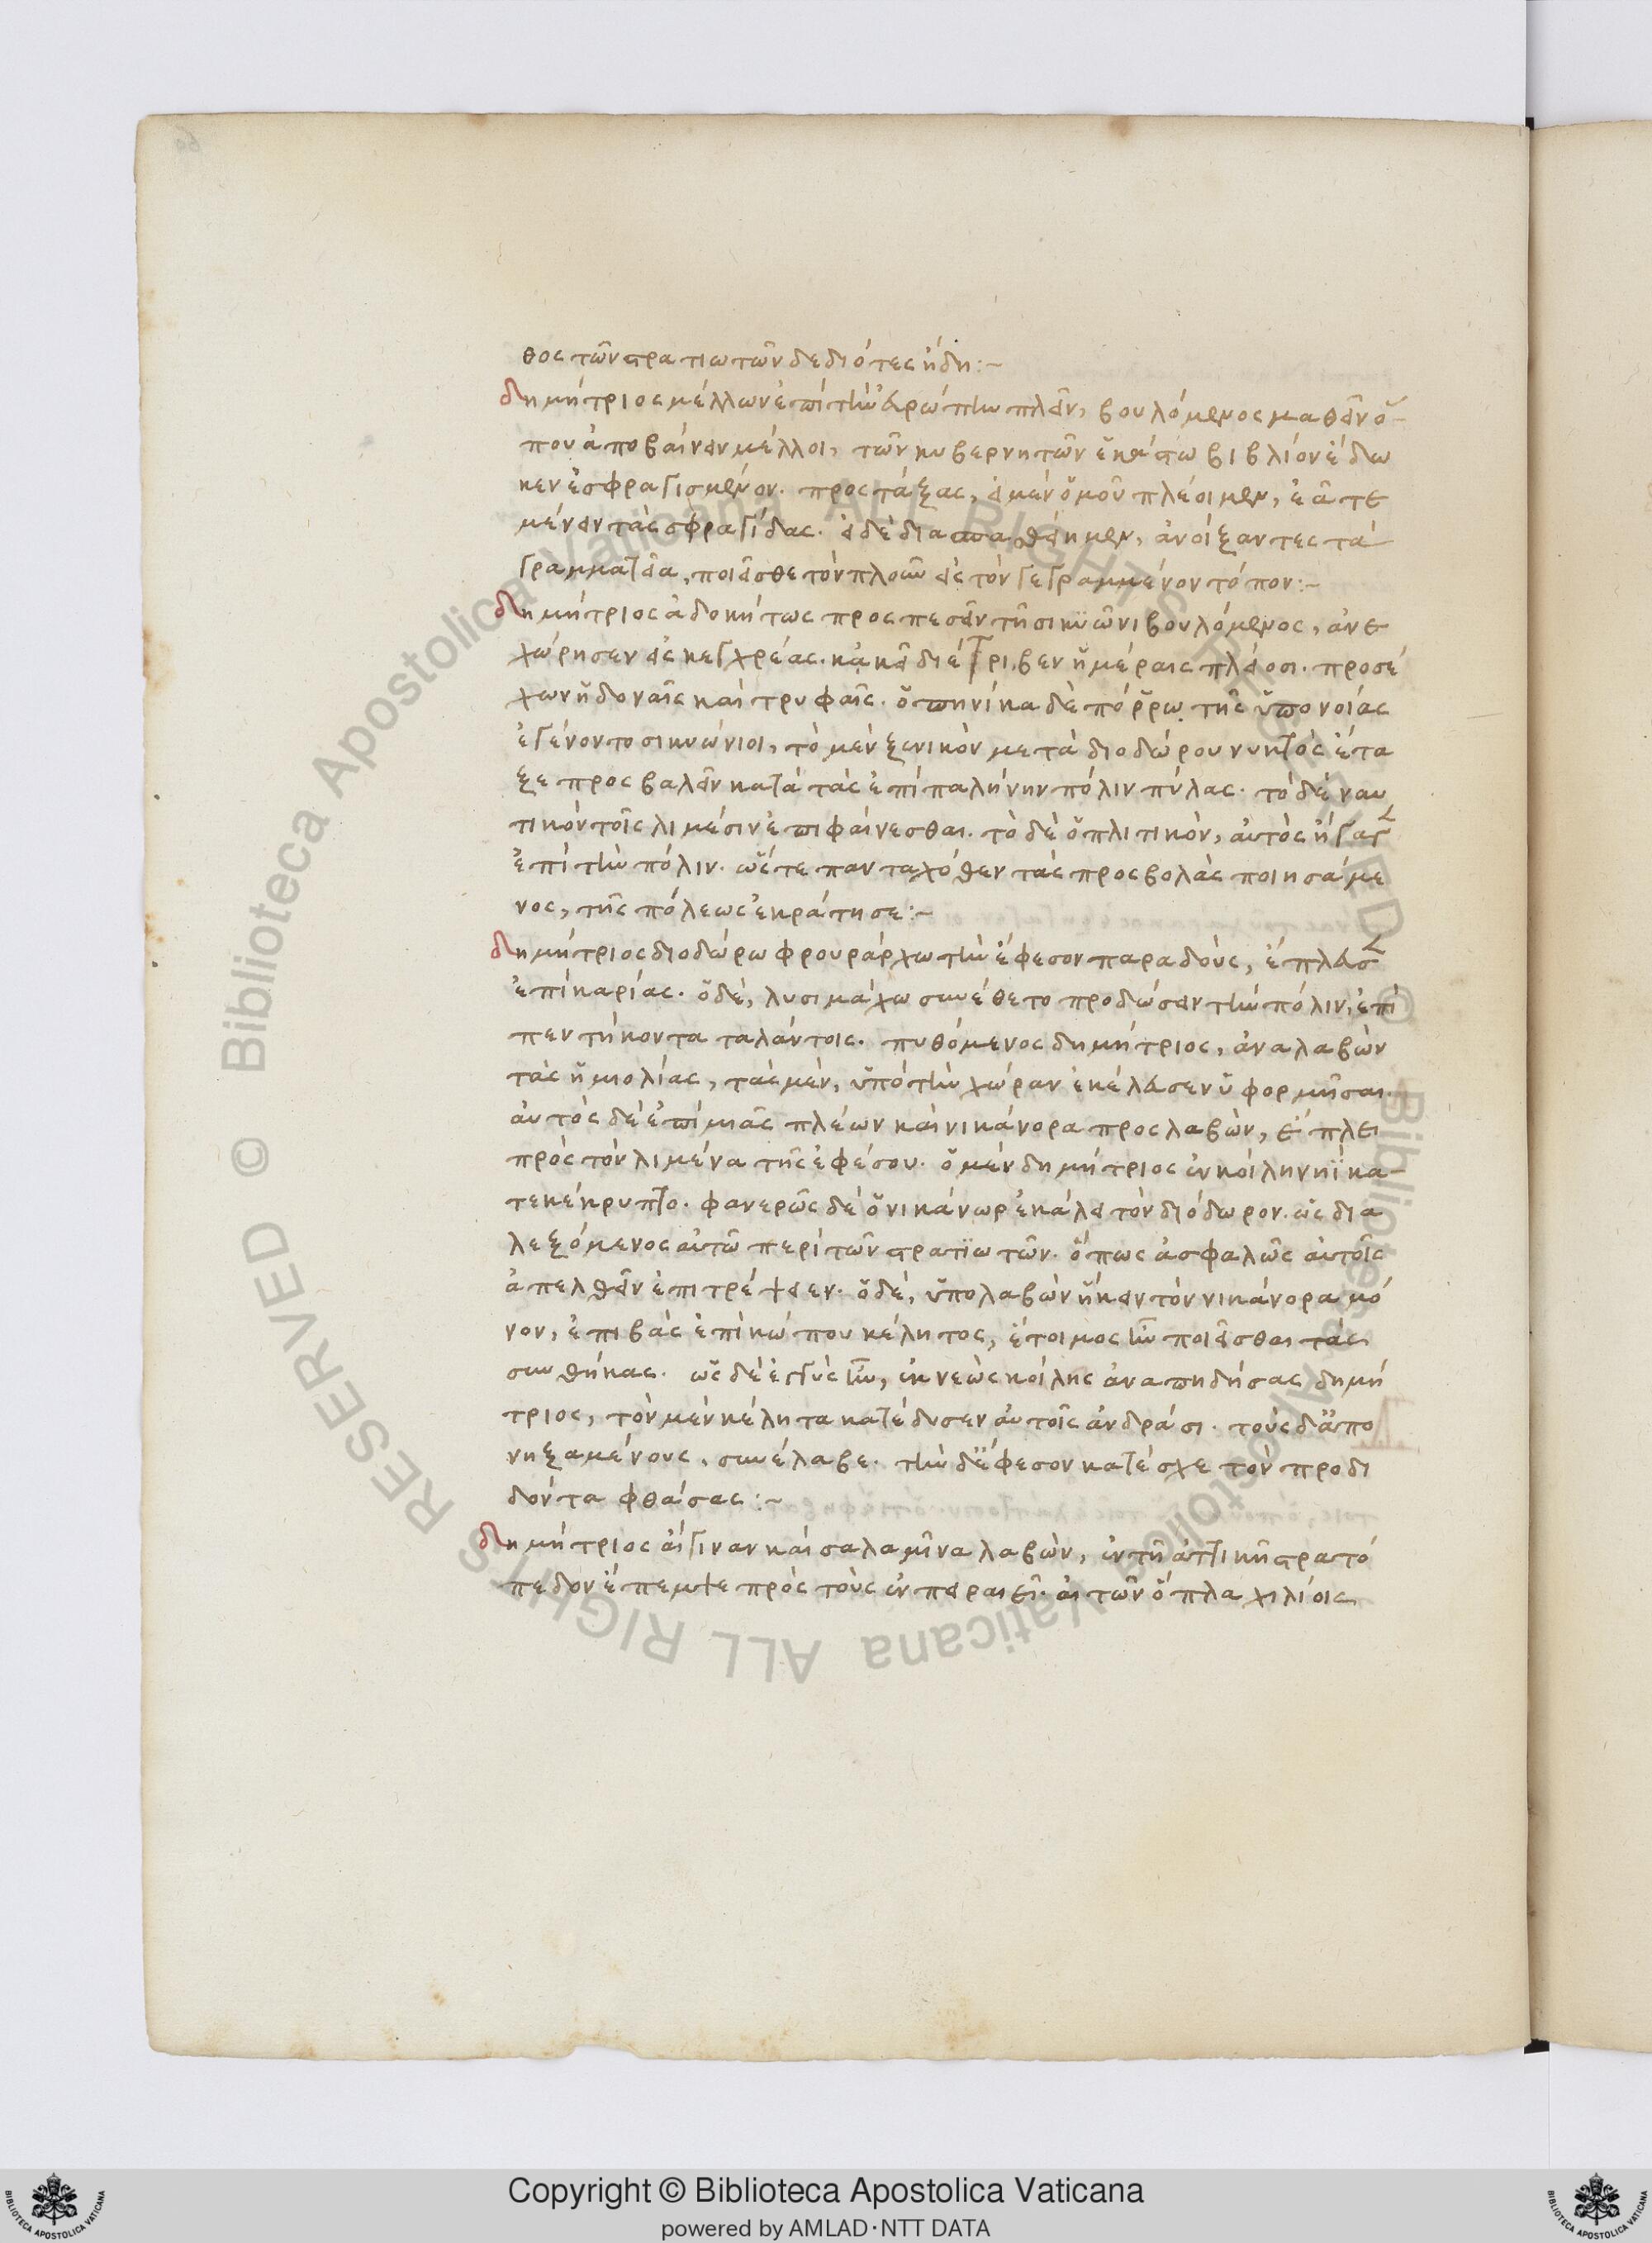 θος τῶν στρατιωτῶν δεδιότες ἤδη:~
δημήτριος μέλλων ἐπὶ τὴν εὐρώπην πλεῖν, βουλόμενος μαθεῖν ὅ-
που ἀποβαίνειν μέλλοι, τῶν κυβερνητῶν ἑκάστω βιβλίον ἔδω
κεν ἐσφραγισμένον. προστάξας, εἰ μὲν ὁμοῦ πλέοιμεν, ἐᾶτε
μένειν τὰς σφραγίδας. εἰ δὲ διασπασθείημεν, ἀνοίξαντες τὰ
γραμματεῖα, ποιεῖσθε τὸν πλοῦν εἰς τὸν γεγραμμένον τόπον:~
δημήτριος ἀδοκήτως προσπεσεῖν τῆ σικυῶνι βουλόμενος, ἀνε
χώρησεν εἰς κεγχρέας. κἀκεῖ διέτριβεν ἡμέραις πλείοσι. προσέ
χων ἡδοναῖς καὶ τρυφαῖς. ὁπηνίκα δὲ πόῤῥω τῆς ὑπονοίας
ἐγένοντο σικυώνιοι, τὸ μὲν ξενικὸν μετὰ διοδώρου νυκτὸς ἔτα
ξε προσβαλεῖν κατὰ τὰς ἐπὶ παλήνην πόλιν πύλας. τὸ δὲ ναυ
τικὸν τοῖς λιμέσιν ἐπιφαίνεσθαι. τὸ δὲ ὁπλιτικὸν, αὐτὸς ἤγαγ
ἐπὶ τὴν πόλιν. ὥστε πανταχόθεν τὰς προσβολὰς ποιησάμε
νος, τῆς πόλεως ἐκράτησε:~
δημήτριος διοδώρω φρουράρχω τὴν ἔφεσον παραδοὺς, ἔπλευσ
ἐπὶ καρίας. ὁ δὲ, λυσιμάχω συνέθετο προδώσειν τὴν πόλιν, ἐπὶ
πεντήκοντα ταλάντοις. πυθόμενος δημήτριος, ἀναλαβὼν
τὰς ἡμιολίας, τὰς μὲν, ὑπὸ τὴν χώραν ἐκέλευσεν ὑφορμῆσαι.
αὐτὸς δὲ ἐπὶ μιᾶς πλέων καὶ νικάνορα προσλαβὼν, εἴπλει
πρὸς τὸν λιμένα τῆς ἐφέσου. ὁ μὲν δημήτριος ἐν κοίλη νηῒ κα-
τεκέκρυπτο. φανερῶς δὲ ὁ νικάνωρ ἐκάλει τὸν διόδωρον. ὡς δια
λεξόμενος αὐτῶ περὶ τῶν στρατϊωτῶν. ὅπως ἀσφαλῶς αὐτοῖς
ἀπελθεῖν ἐπιτρέψειεν. ὁ δὲ, ὑπολαβὼν ἥκειν τὸν νικάνορα μό
νον, ἐπιβὰς ἐπὶ κώπου κέλητος, ἕτοιμος ἦν ποιεῖσθαι τὰς
συνθήκας. ὡς δὲ ἐγγὺς ἦν, ἐκ νεὼς κοίλης ἀναπηδήσας δημή
τριος, τὸν μὲν κέλητα κατέδυσεν αὐτοῖς ἀνδράσι. τοὺς δ' ἀπο
νηξαμένους, συνέλαβε. τὴν δ' ἔφεσον κατέσχε τὸν προδι
δόντα φθάσας:~
δημήτριος αἴγιναν καὶ σαλαμῖνα λαβὼν, ἐν τῆ ἀττικῆ στρατό
πεδον ἔπεμψε πρὸς τοὺς ἐν πειραιεῖ. αἰτῶν ὅπλα χιλίοις